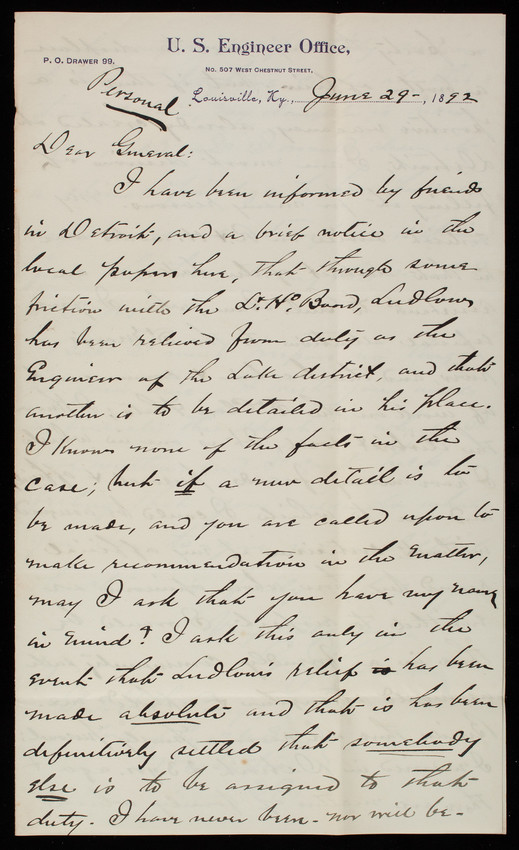 U. S. Engineer Office,
P. O. DRAWER 99.
No. 507 WEST CHESTNUT STREET,
Personal
Louisville, Ky., June 29-, 1892
Dear General:
I have been informed by friends
in Detroit, and a brief notice in the
local papers here, that through some
friction with the Lt. Ho. Board, Ludlow
has been relieved from duty as the
Engineer of the Lake district, and that
another is to be detailed in his place.
I know none of the facts in the
case; but if a new detail is to
be made, and you are called upon to
make recommendation in the matter,
may I ask that you have my name
in mind? I ask this only in the
event that Ludlow's relief is has been
made absolute and that it has been
definitively settled that somebody
else is to be assigned to that
duty. I have never been - nor will be -